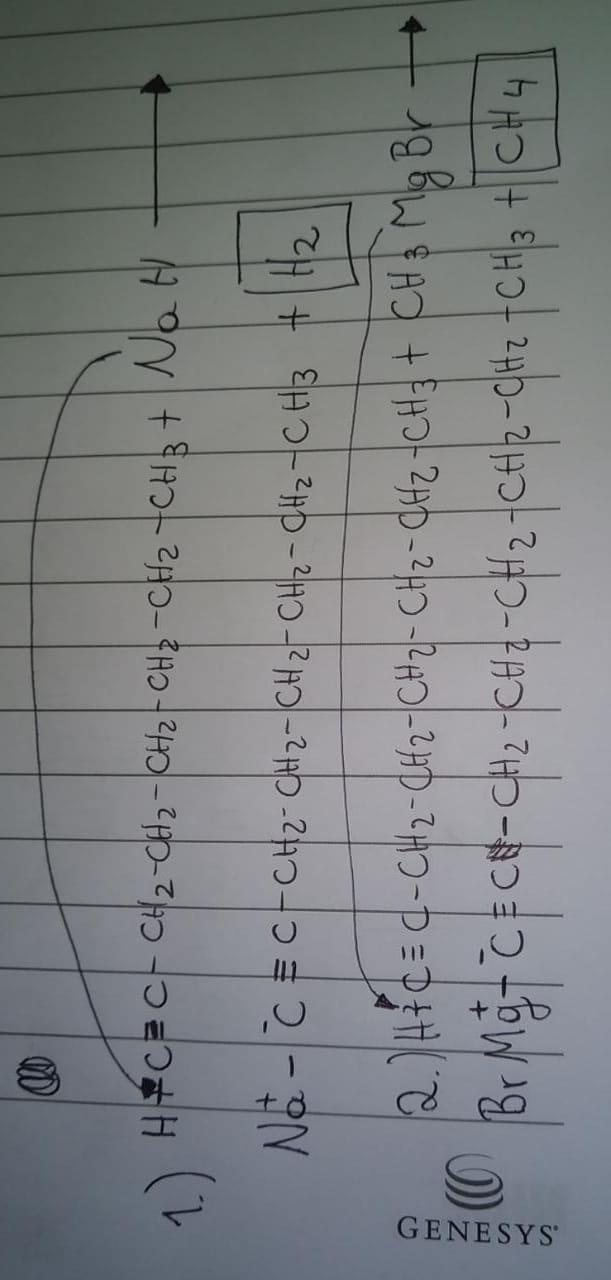 1.) H-C≡C-CH2-CH2-CH2-CH2-CH2-CH3 + NaH →
Na⁺-⁻C≡C-CH2-CH2-CH2-CH2-CH2-CH3 + H2
2.) H-C≡C-CH2-CH2-CH2-CH2-CH2-CH3 + CH3MgBr →
BrMg⁺-⁻C≡C-CH2-CH2-CH2-CH2-CH2-CH3 + CH4
GENESYS